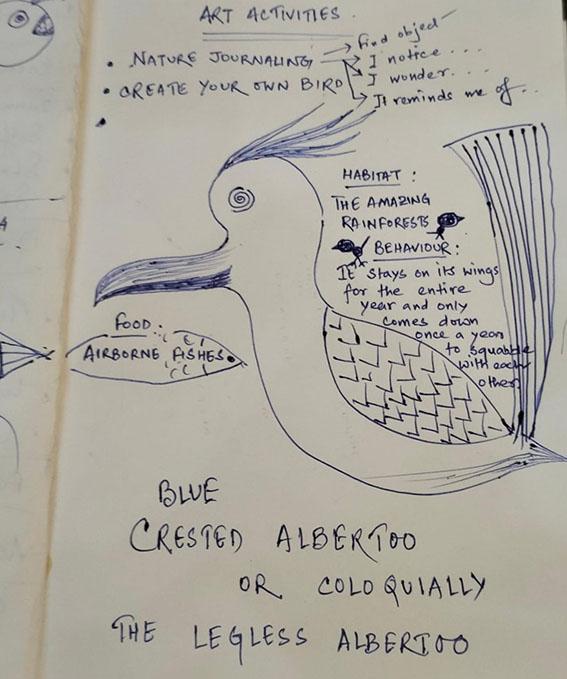 ART ACTIVITIES.
• NATURE JOURNALING
→ find object
→ I notice ....
→ I wonder....
→ It reminds me of...
• CREATE YOUR OWN BIRD
•
HABITAT :
THE AMAZING
RAINFORESTS
BEHAVIOUR :
IT stays on its wings
for the entire
year and only
comes down
once a year
to squabble
with each
other
FOOD :
AIRBORNE FISHES.
BLUE
CRESTED ALBERTOO
OR COLOQUIALLY
THE LEGLESS ALBERTOO